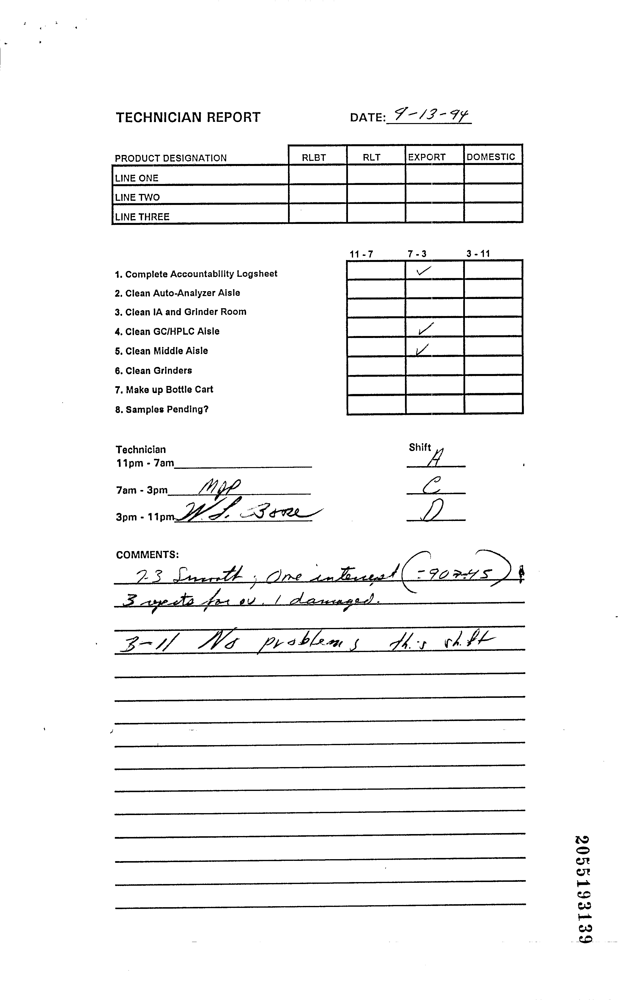 TECHNICIAN REPORT DATE: 9-13-94
PRODUCT DESIGNATION RLBT RLT EXPORT DOMESTIC
LINE ONE
LINE TWO
LINE THREE
11 - 7 7 - 3 3 - 11
1. Complete Accountability Logsheet ✓
2. Clean Auto-Analyzer Aisle
3. Clean IA and Grinder Room
4. Clean GC/HPLC Aisle ✓
5. Clean Middle Aisle ✓
6. Clean Grinders
7. Make up Bottle Cart
8. Samples Pending?
Technician Shift
11pm - 7am A
7am - 3pm C
3pm - 11pm W. S. D
COMMENTS:
7-3 Smooth; One
3 for ov. 1 damaged.
3-11 No problems this shift
2055193139